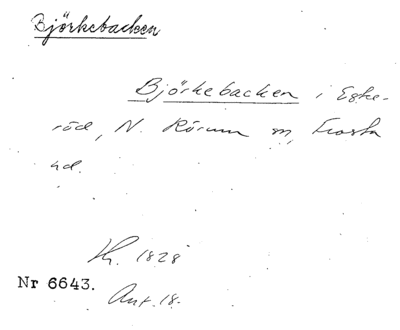 Björkebacken
Björkebacken i Eske-
röd, N. Rörum sn, Frosta
hd.
Kh. 1828
Nr 6643.
Ant. 18.